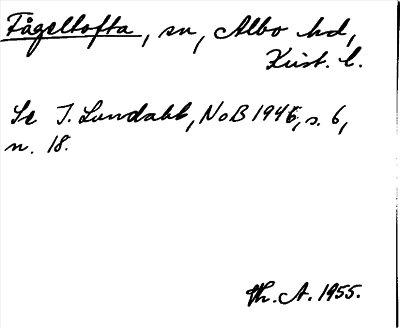 Fågeltofta, sn, Albo hd,
Krist. l.
Se I. Lundahl, NoB 1946, s. 6,
n. 18.
Th. A. 1955.